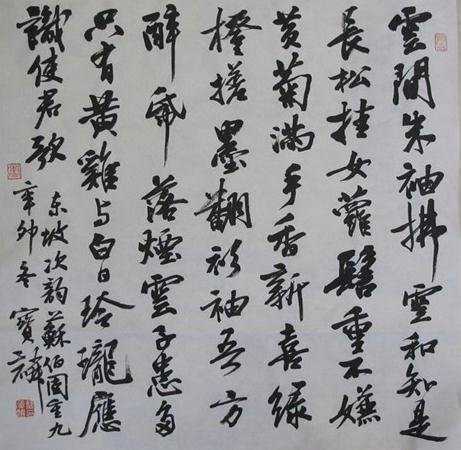 雲間朱袖拂雲和知是
長松挂女蘿髻重不嫌
黄菊滿手香新喜緑
橙搓墨翻衫袖吾方
醉帋落煙雲子患多
只有黃雞与白日玲瓏應
識使君歌
東坡次韵蘇伯固重九
辛卯冬 寶